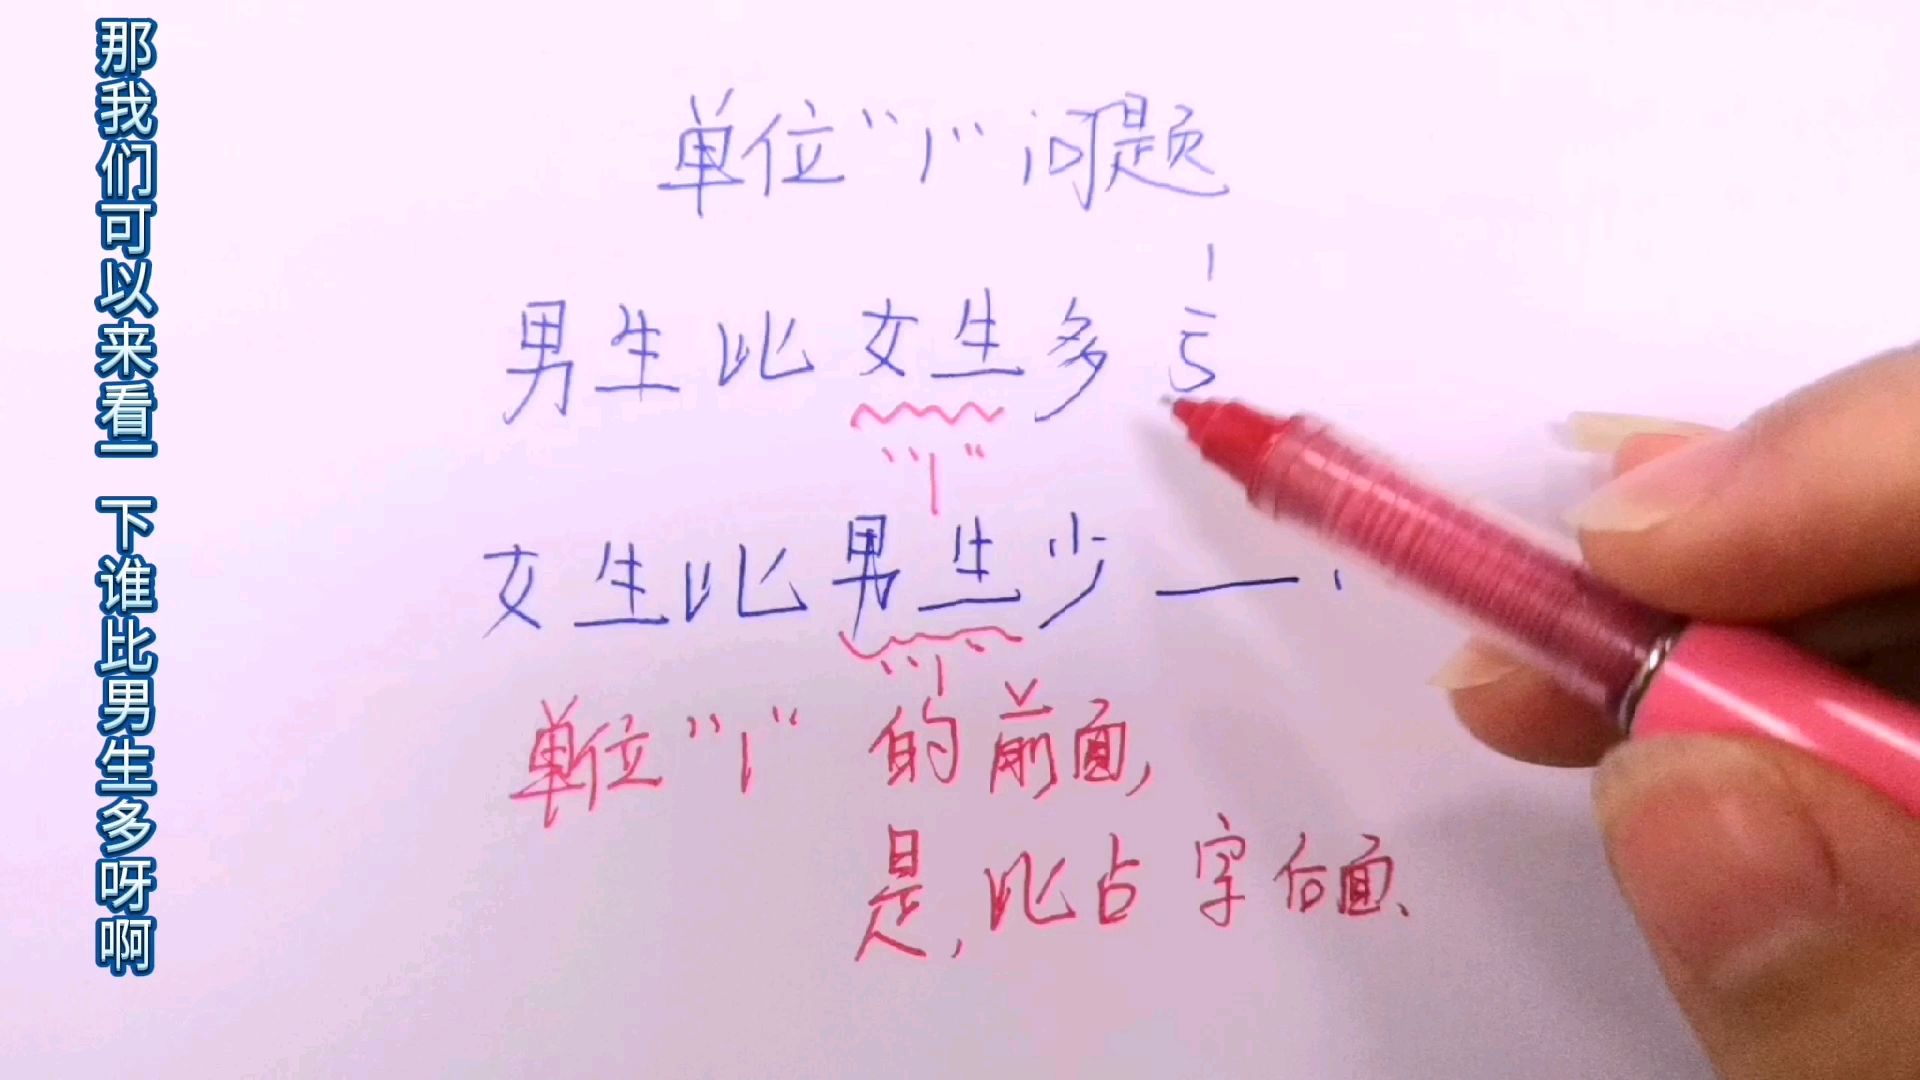 那我们可以来看一下谁比男生多呀啊
单位“1”问题
男生比女生多1/5
“1”
女生比男生少____.
“1”
单位“1”的前面,
是,比占字后面、